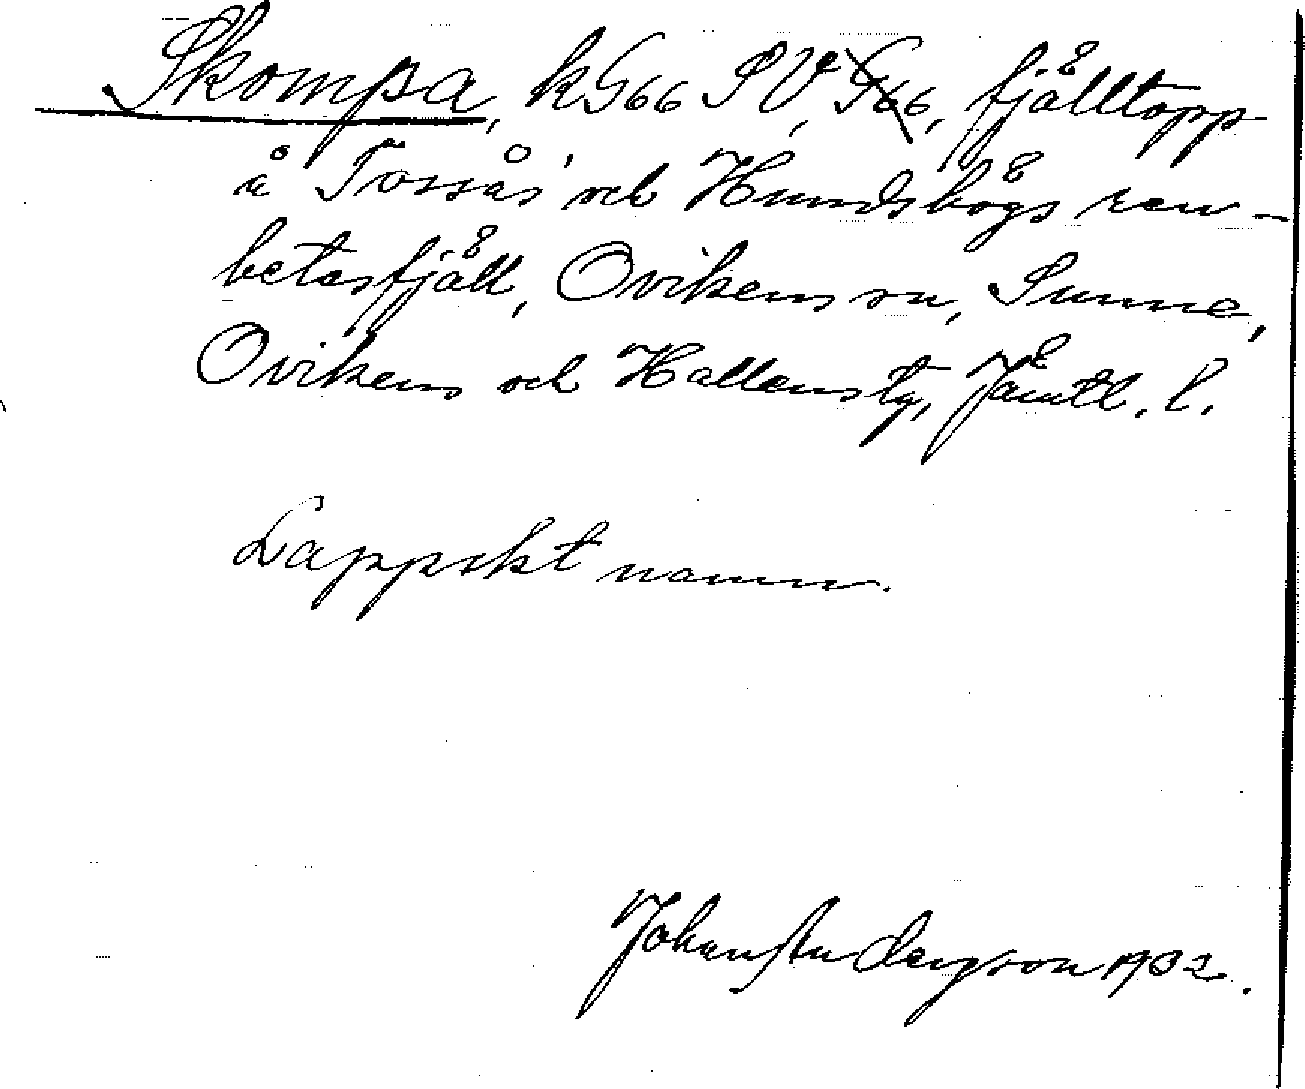 Skompa, k G66 SV, G66, fjälltopp
å Tossås och Hundshögs ren-
betesfjäll, Ovikens sn, Sunne,
Ovikens och Hallens tg, Jämtl. l.
Lappskt namn.
Johan Anderson 1932.